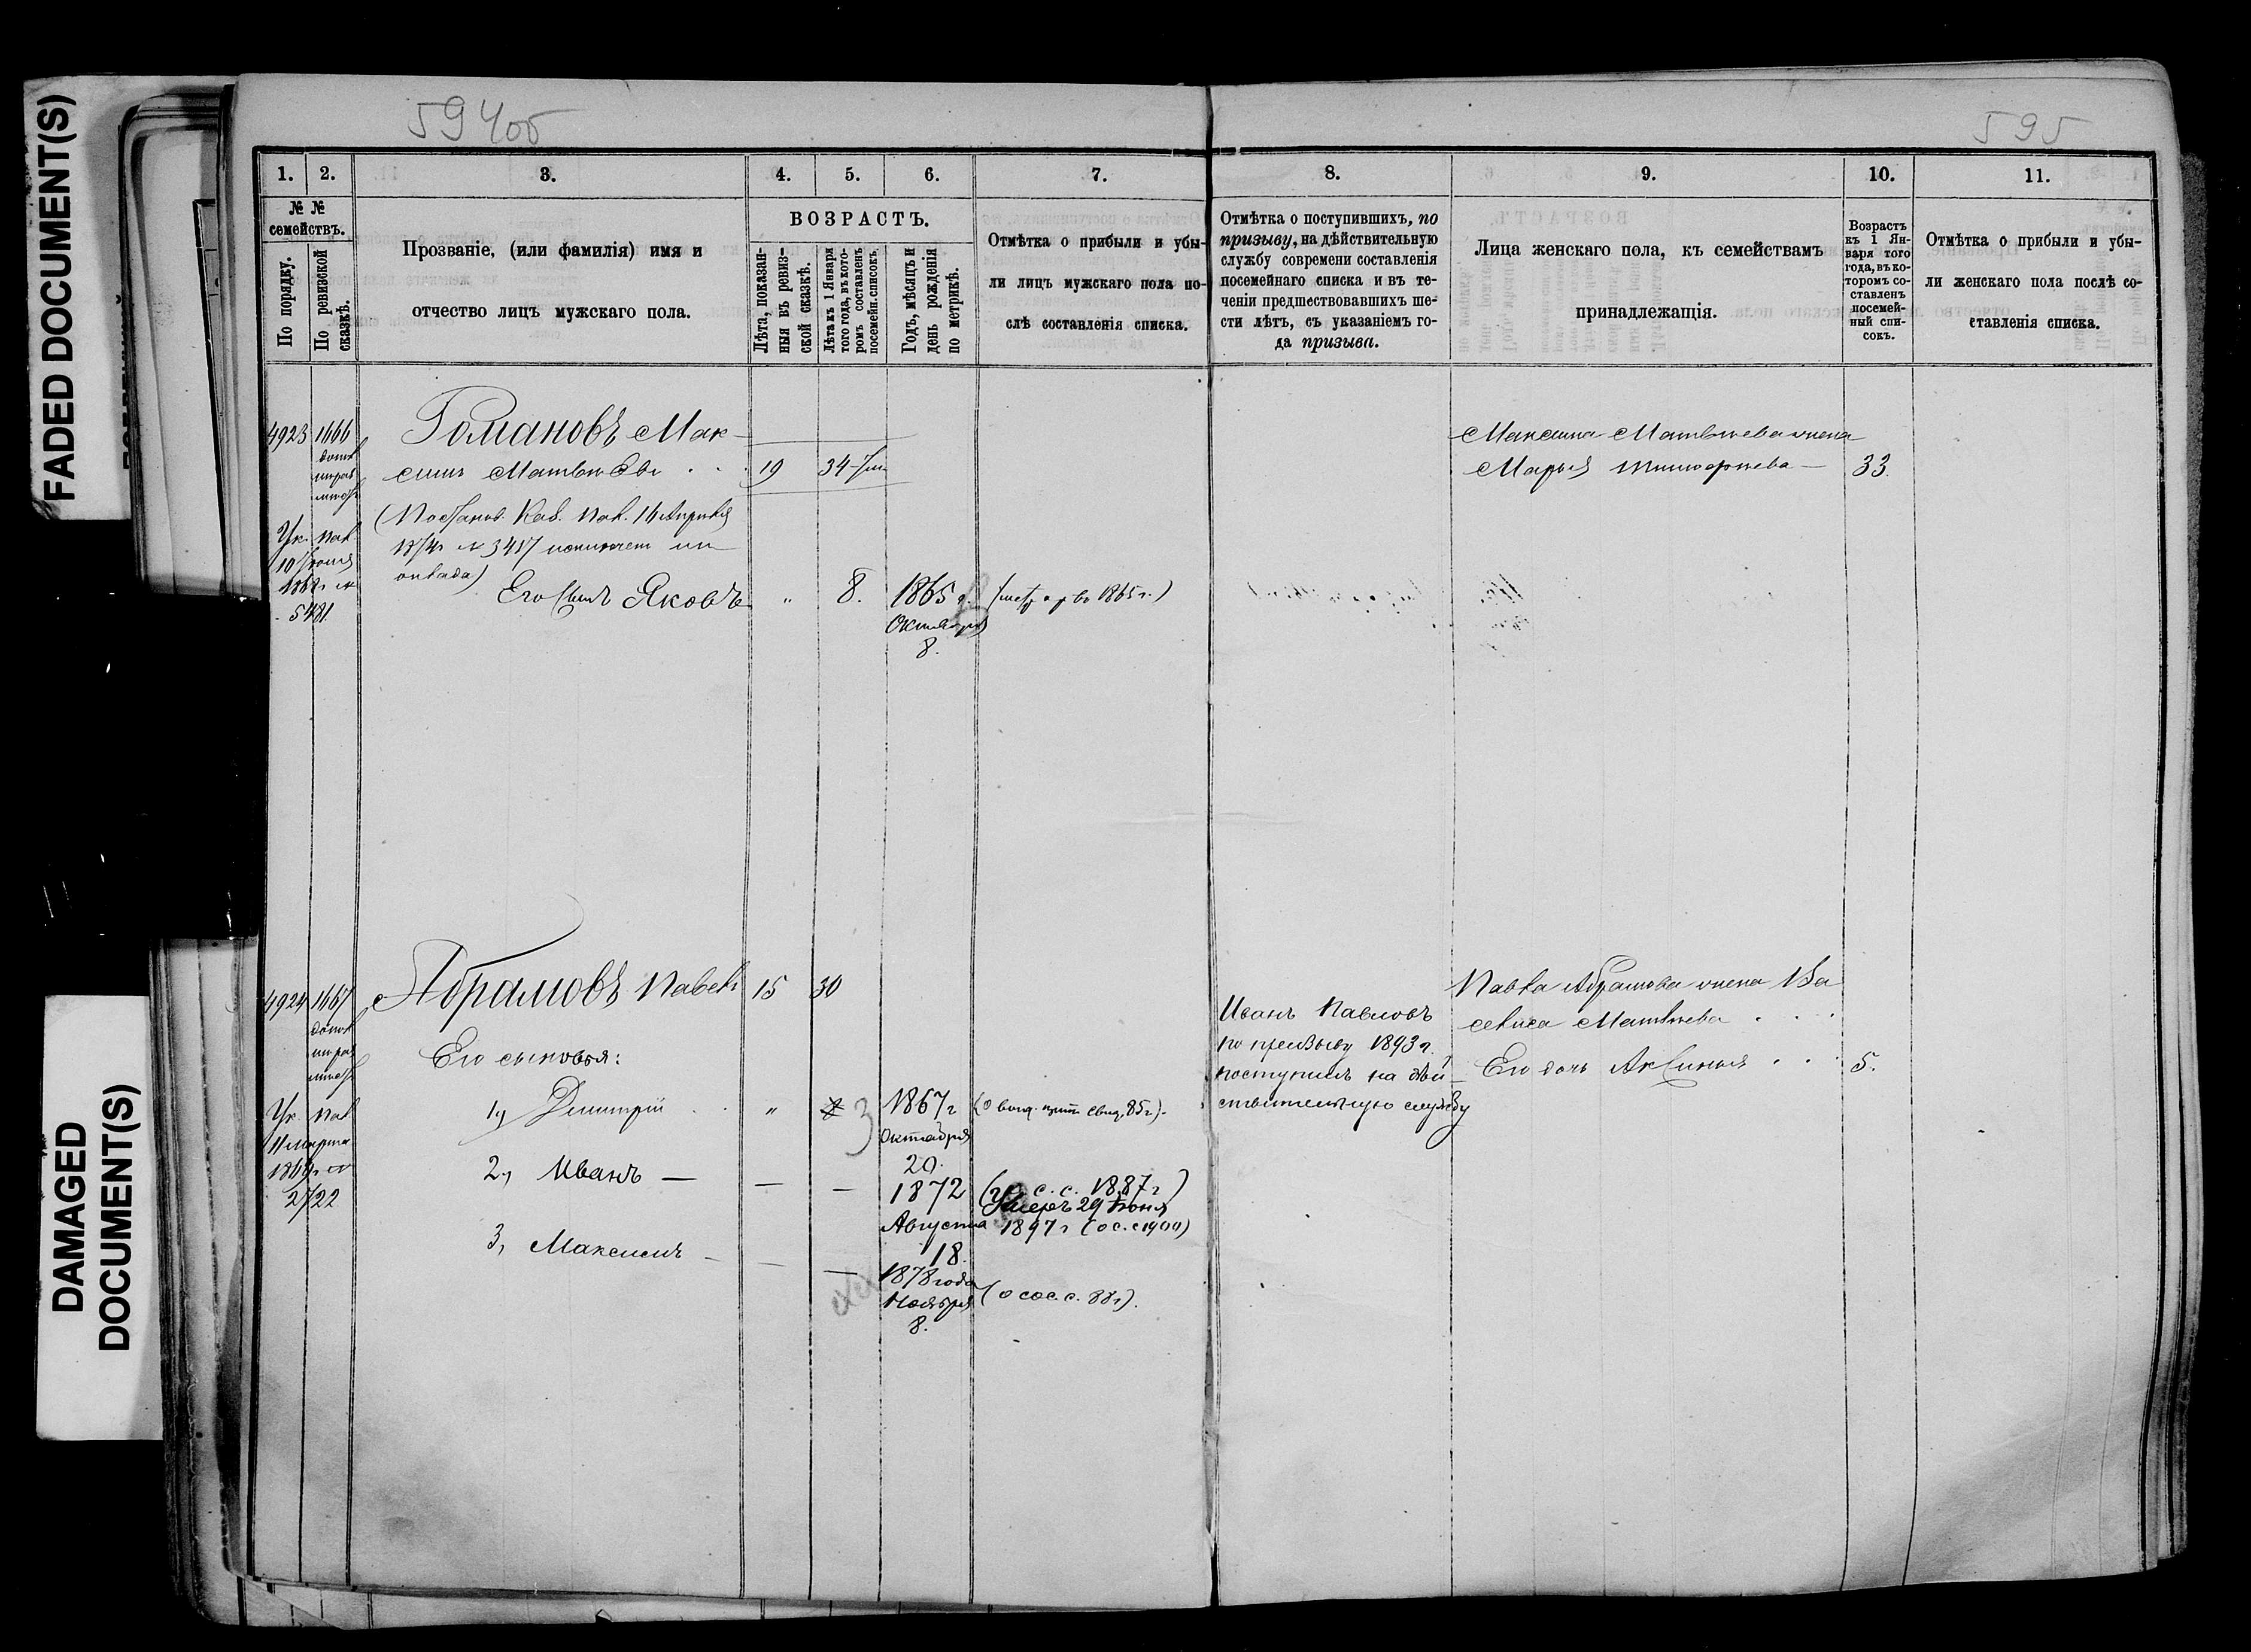 FADED DOCUMENT(S)
DAMAGED
DOCUMENT(S)
594об
595
1.
2.
3.
4.
5.
6.
7.
8.
9.
10.
11.
№ №
семействъ.
По порядку.
По ревизской
сказкѣ.
Прозваніе, (или фамилія) имя и
отчество лицъ мужскаго пола.
ВОЗРАСТЪ.
Лѣта, показан-
ныя въ ревиз-
ской сказкѣ.
Лѣта къ 1 Января
того года, въ кото-
ромъ составленъ
посемейн. списокъ.
Годъ, мѣсяцъ и
день рожденія
по метрикѣ.
Отмѣтка о прибыли и убы-
ли лицъ мужскаго пола по-
слѣ составленія списка.
Отмѣтка о поступившихъ, по
призыву, на дѣйствительную
службу современи составленія
посемейнаго списка и въ те-
ченіи предшествовавшихъ ше-
сти лѣтъ, съ указаніемъ го-
да призыва.
Лица женскаго пола, къ семействамъ
принадлежащія.
Возрастъ
къ 1 Ян-
варя того
года, въ ко-
торомъ со-
ставленъ
посемей-
ный спи-
сокъ.
Отмѣтка о прибыли и убы-
ли женскаго пола послѣ со-
ставленія списка.
4923
1666
Ук. Пал
10
5481
Романовъ Мак-
симъ Матвѣевъ
19
34
(Постанов. Каз. Пал. 16 Апрѣля
1874г № 3417
оклада)
Его сынъ Яковъ
"
8.
1865г.
Октября
8.
1865г.)
Максима Матвѣева жена
Марья
33.
4924
1667
Ук. Пал
11 марта
2722
Абрамовъ Павелъ
15
30
Его сыновья:
1, Дмитрій
"
3
1867г
Октября
20.
85г).
2, Иванъ —
—
—
1872
Августа
18.
с. с. 1887г)
Умеръ 29 Іюня
1897г (о с. с 1900)
3, Максимъ —
—
—
1878 года
Ноября
8.
(о сос. с. 88г).
Иванъ Павловъ
по призыву 1893г.
поступилъ на дѣй-
ствительную службу
Павла Абрамова жена Ва
Матвѣева
Его дочь Аксинья
5.